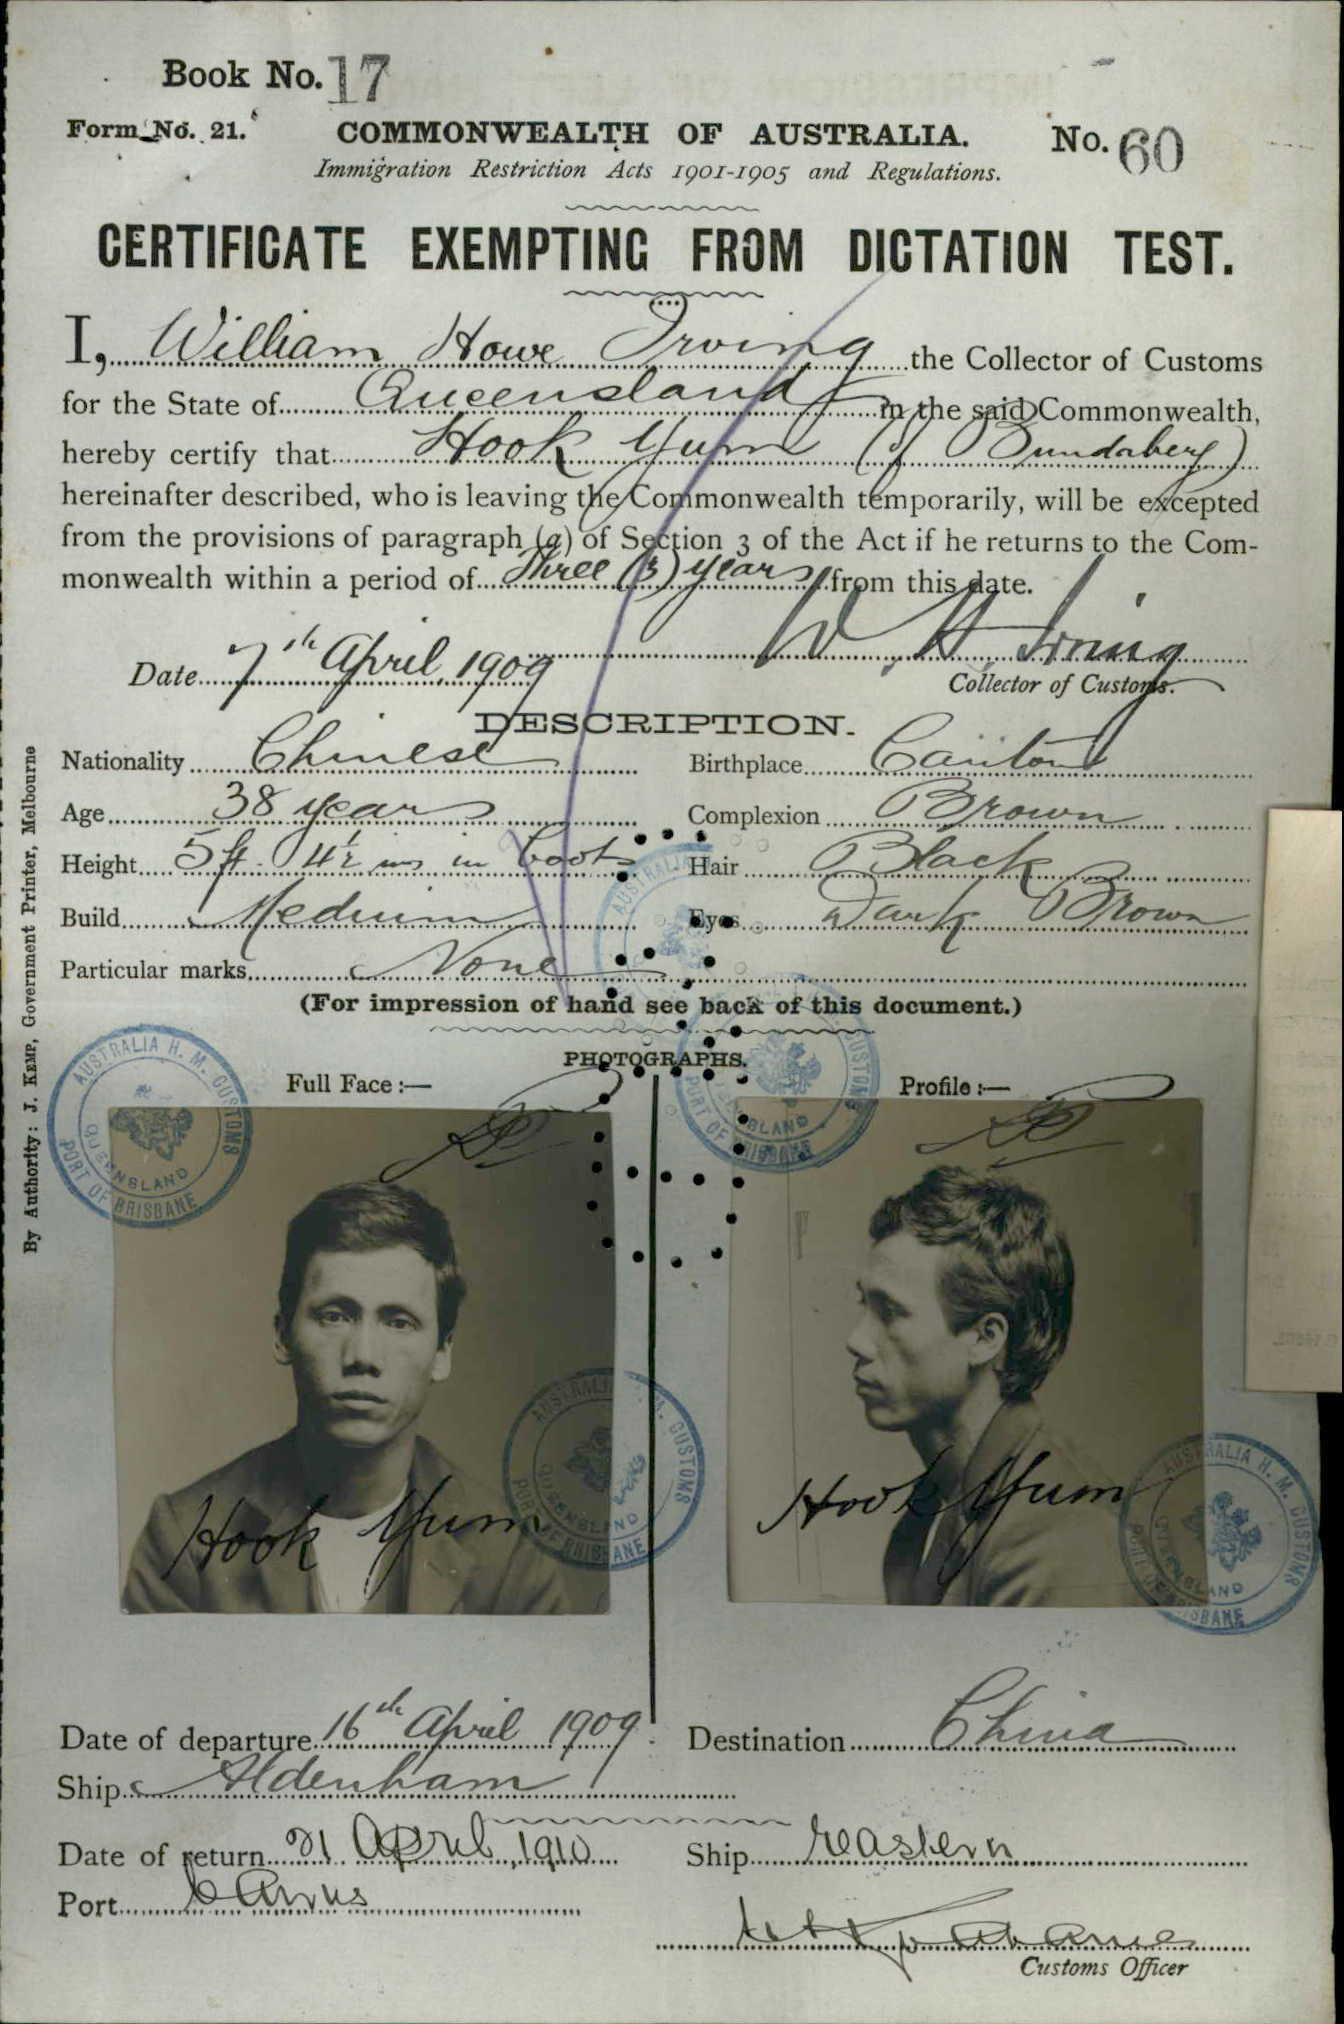 Book No. 17
Form No. 21.
COMMONWEALTH OF AUSTRALIA.
No. 60
Immigration Restriction Acts 1901-1905 and Regulations.
CERTIFICATE EXEMPTING FROM DICTATION TEST.
I, William Howe Irving the Collector of Customs
for the State of Queensland in the said Commonwealth,
hereby certify that Hook Yum (of Bundaberg)
hereinafter described, who is leaving the Commonwealth temporarily, will be excepted
from the provisions of paragraph (a) of Section 3 of the Act if he returns to the Com-
monwealth within a period of Three (3) years from this date.
W. H. Irving
Date 7th April, 1909
Collector of Customs.
DESCRIPTION.
Nationality Chinese Birthplace Canton
Age 38 years Complexion Brown
Height 5 ft. 4½ ins in boots Hair Black
Build Medium Eyes Dark Brown
Particular marks None
(For impression of hand see back of this document.)
PHOTOGRAPHS.
Full Face :— Profile :—
AUSTRALIA H. M. CUSTOMS
QUEENSLAND
PORT OF BRISBANE
AUSTRALIA
CUSTOMS
PORT OF
AUSTRALIA H. M. CUSTOMS
QUEENSLAND
PORT OF BRISBANE
AUSTRALIA H. M. CUSTOMS
QUEENSLAND
PORT OF BRISBANE
Hook Yum
Hook Yum
By Authority: J. KEMP, Government Printer, Melbourne
Date of departure 16th April 1909. Destination China
Ship Aldenham
Date of return 21 April, 1910 Ship Eastern
Port Cairns
Customs Officer